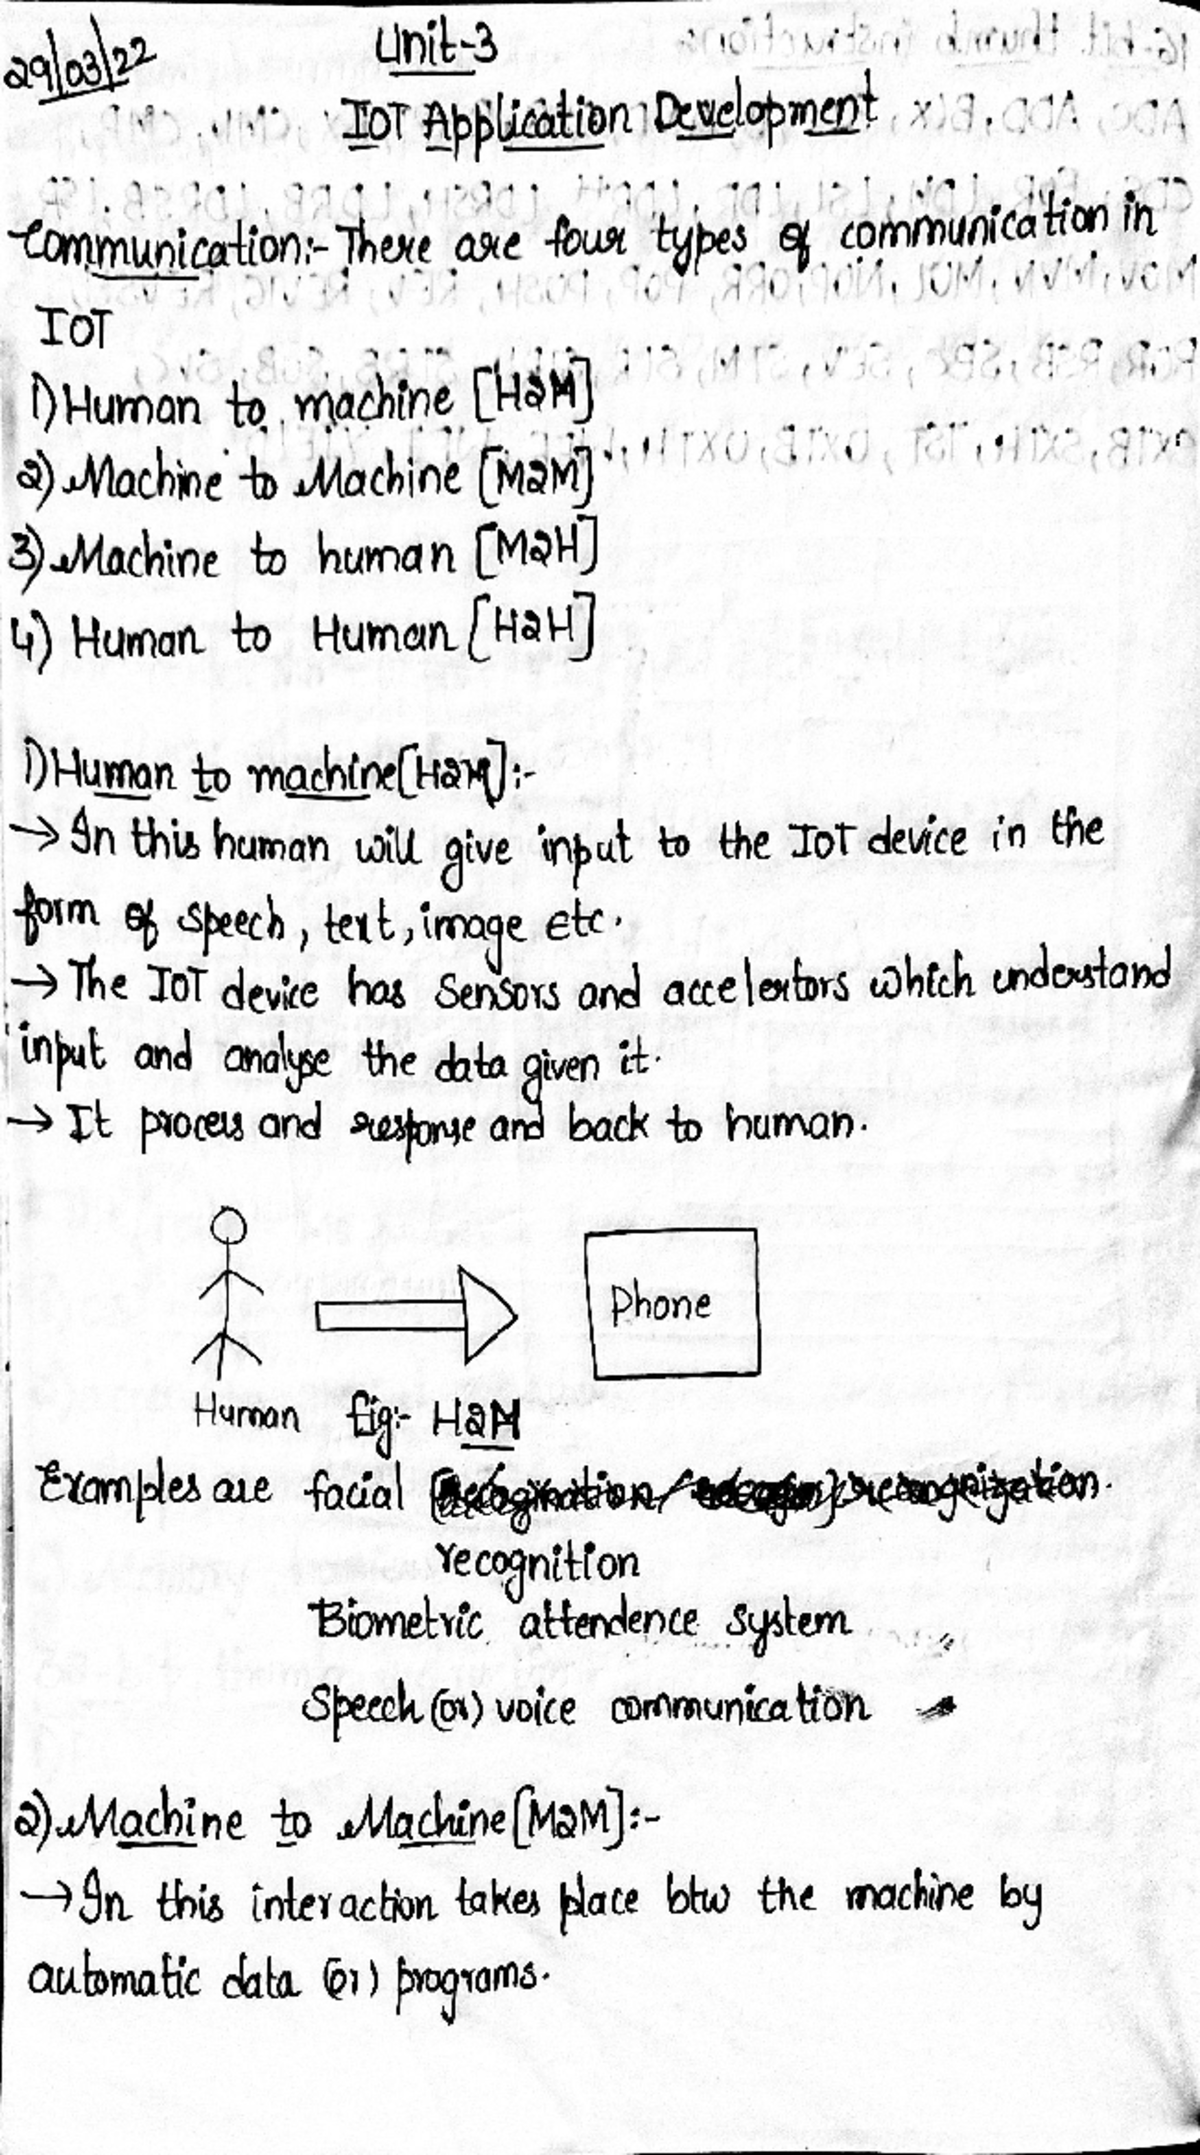 29/03/22
Unit-3
IOT Application Development
Communication:- There are four types of communication in
IOT
1) Human to machine [H2M]
2) Machine to Machine [M2M]
3) Machine to human [M2H]
4) Human to Human [H2H]
1) Human to machine [H2M]:-
→ In this human will give input to the IOT device in the
form of speech, text, image etc.
→ The IOT device has sensors and accelertors which understand
input and analyse the data given it.
→ It process and response and back to human.
Phone
Human fig:- H2M
Examples are facial recognization.
recognition
Biometric attendence system
Speech (or) voice communication
2) Machine to Machine [M2M]:-
→ In this interaction takes place btw the machine by
automatic data (or) programs.